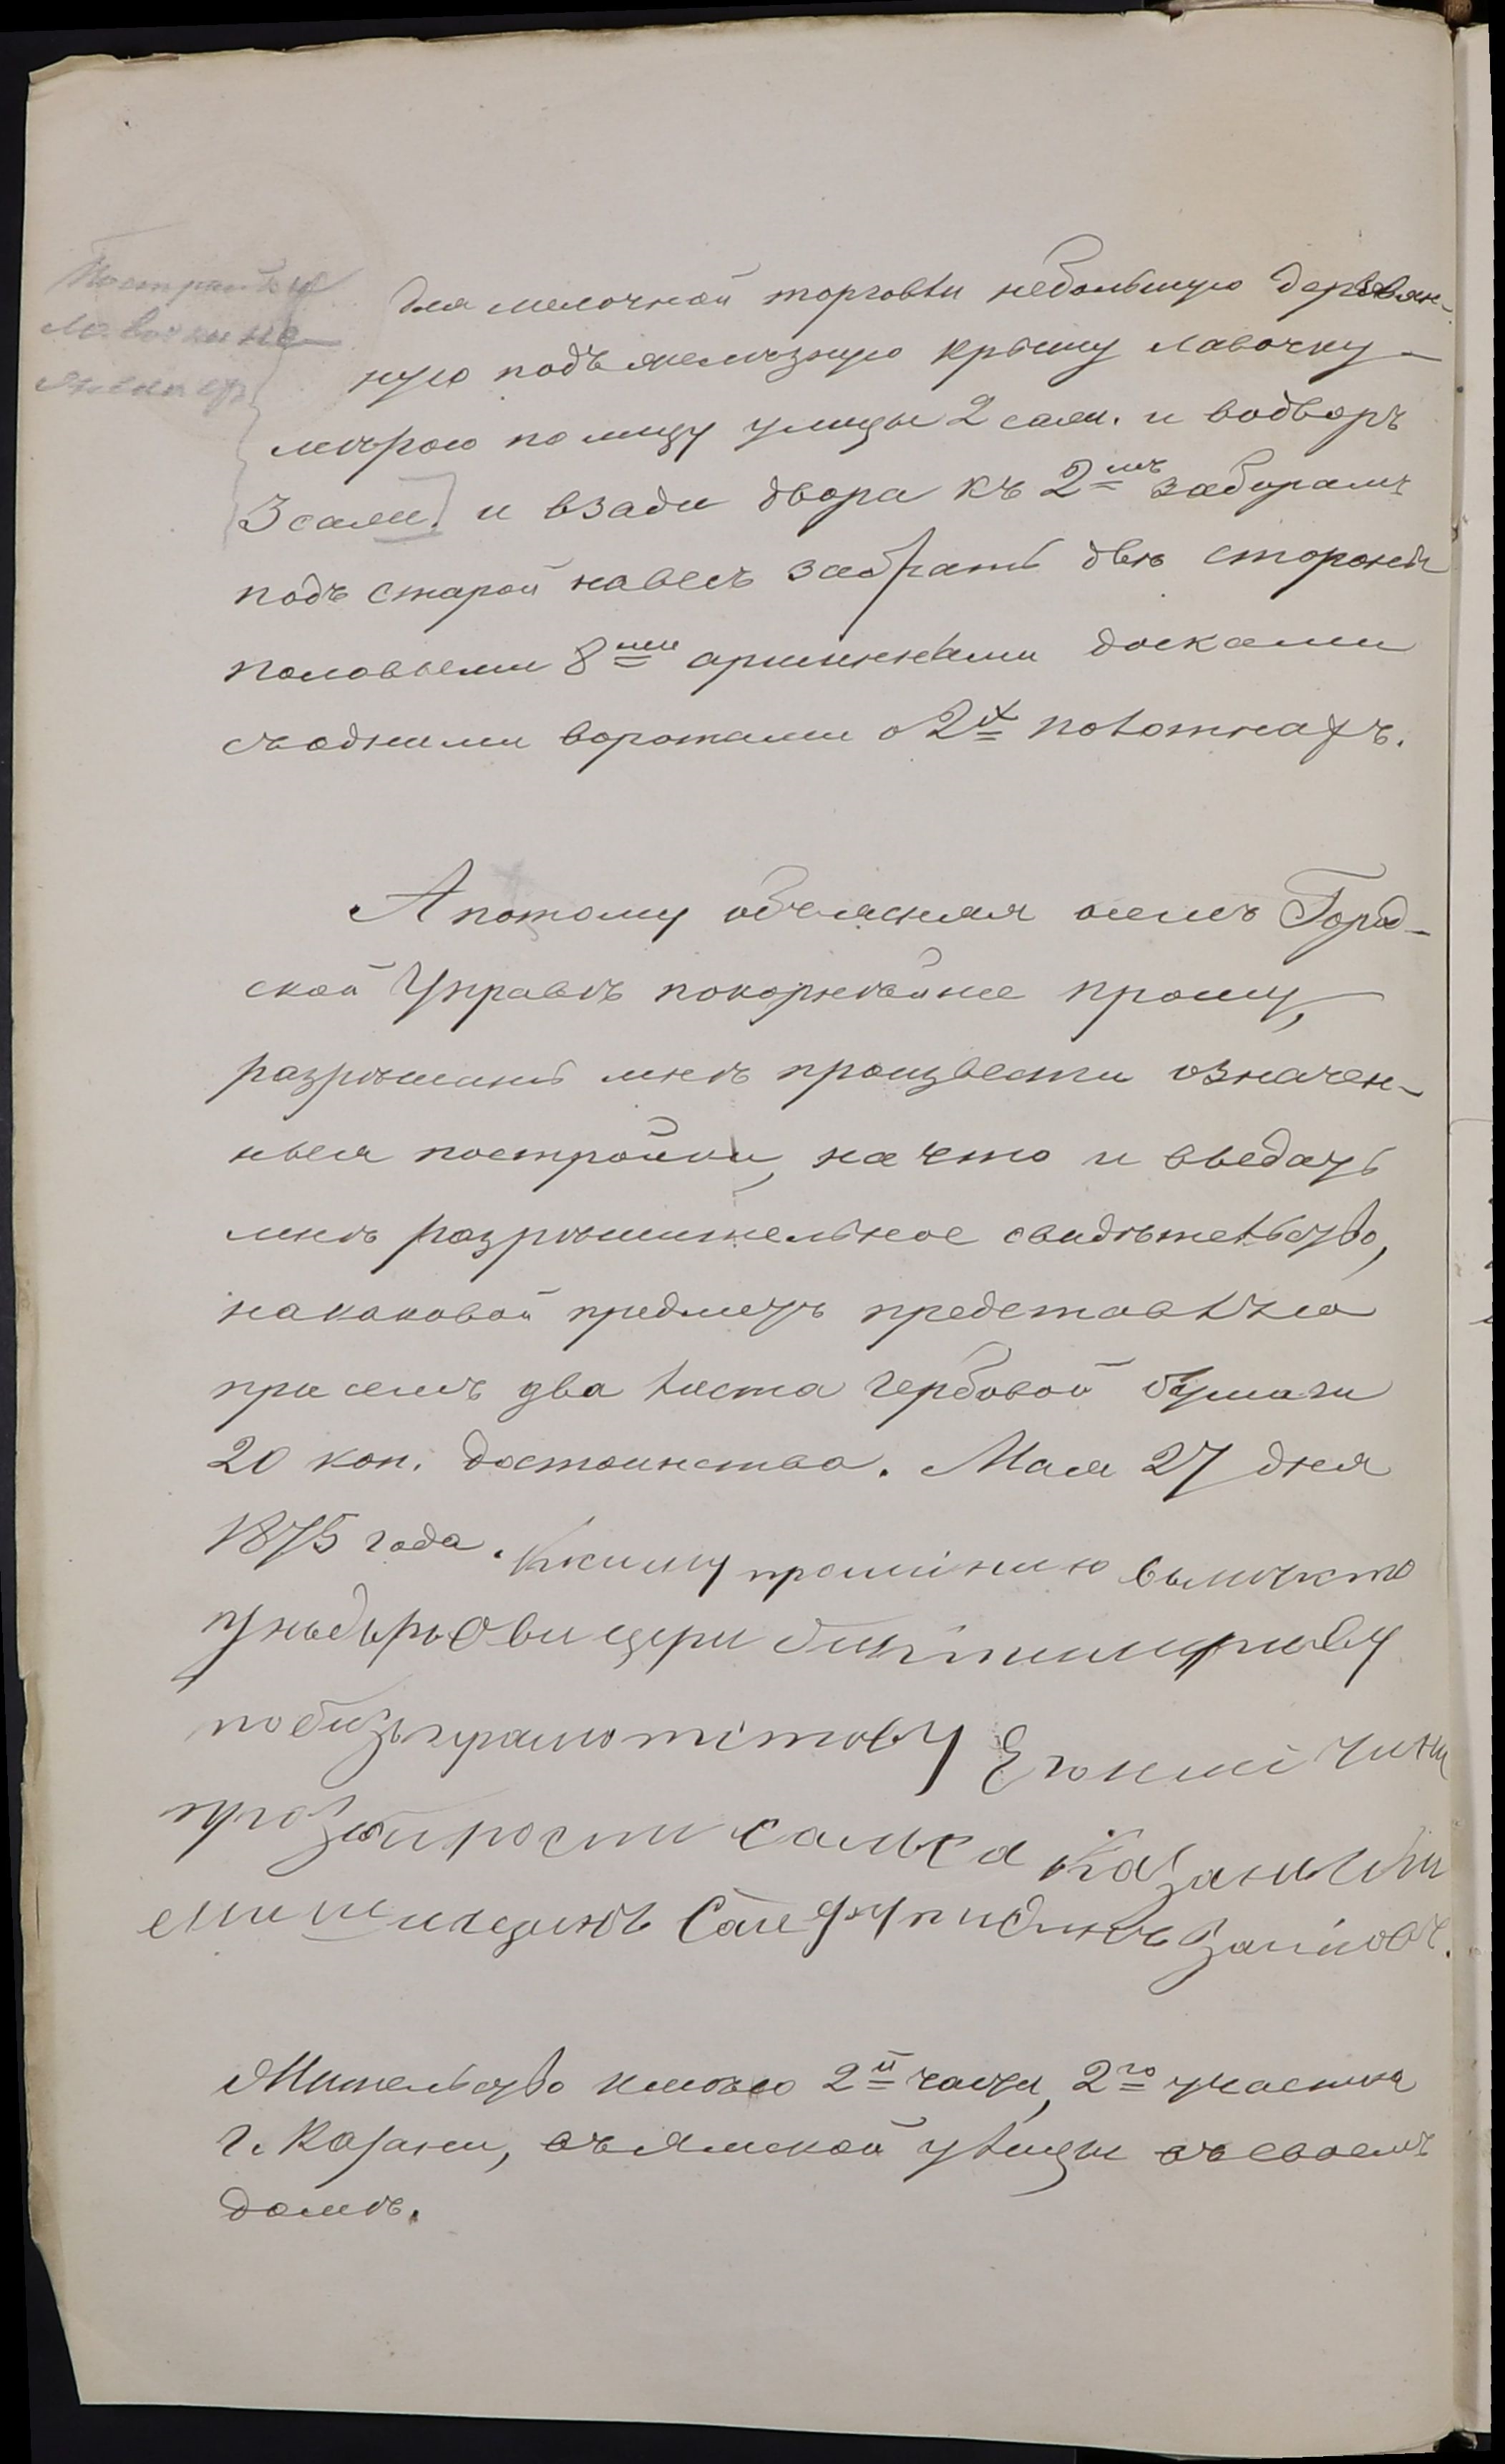 Постройки
лавочки не
для мелочной торговли небольшую деревян-
ную подъ желѣзную крышу лавочку
мѣрою по лицу улицы 2 саж. и водворъ
3 саж. и взади двора къ 2мъ заборамъ
подъ старой навесъ забрать двѣ стороны
половыми 8ми аршинными досками
съ одними воротами о 2х полотнахъ.
А потому объясняя осемъ Город-
ской Управѣ покорнѣйше прошу,
разрѣшить мнѣ произвести означен-
ныя постройки, на что и выдать
мнѣ разрѣшительное свидѣтельство,
на каковой предметъ представляю
при семъ два листа гербовой бумаги
20 коп. достоинства. Мая 27 дня
1875 года. Ксиму прошiнию вымѣсто
по бизъграмотiтову Егожилi
прозьби росписалься Казански
мишшанинъ Сайфутдинъ
Жительство имѣю 2й части, 2го участка
г. Казани, въ Ямской улицы въ своемъ
домѣ.